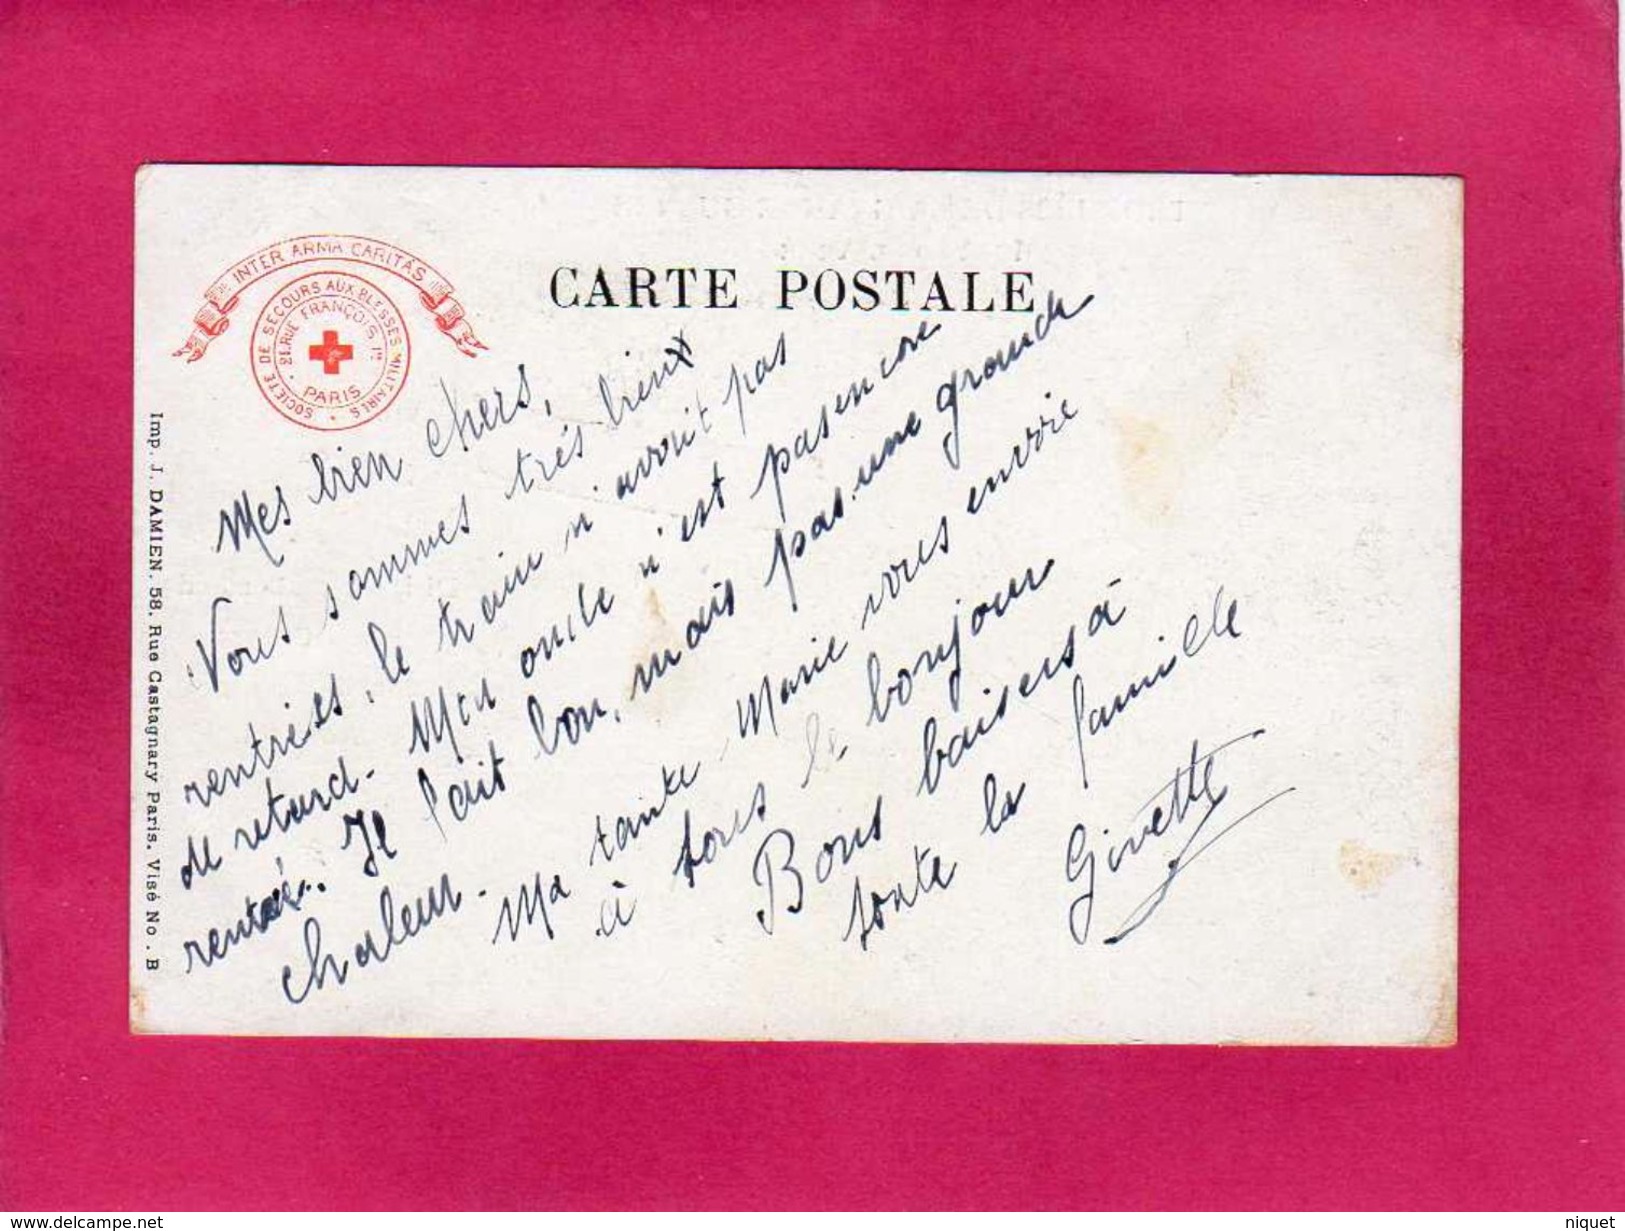 INTER ARMA CARITAS
SOCIÉTÉ DE SECOURS AUX BLESSÉS MILITAIRES
21. RUE FRANÇOIS 1er
PARIS
CARTE POSTALE
Imp. J. DAMIEN. 58. Rue Castagnary Paris. Visé No. B
Mes bien chers,
Nous sommes très bien
rentrées, le train n'avait pas
de retard. Mon oncle n'est pas encore
rentré. Il fait bon, mais pas une grande
chaleur.
Ma tante Marie vous envoie
à tous le bonjour
Bons baisers à
toute la famille
Ginette
www.delcampe.net
niquet